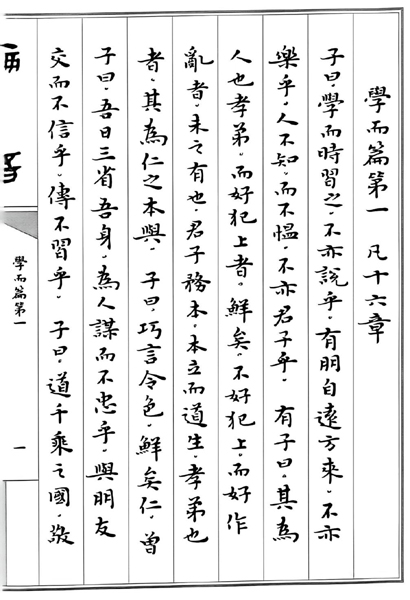 學而篇第一 凡十六章
子曰。學而時習之。不亦説乎。有朋自遠方來。不亦
樂乎。人不知而不愠。不亦君子乎。 有子曰。其為
人也孝弟。而好犯上者。鮮矣。不好犯上。而好作
亂者。未之有也。君子務本。本立而道生。孝弟也
者。其為仁之本與。 子曰。巧言令色。鮮矣仁。曾
子曰。吾日三省吾身。為人謀而不忠乎。與朋友
交而不信乎。傳不習乎。 子曰。道千乘之國。敬
學而篇第一
一